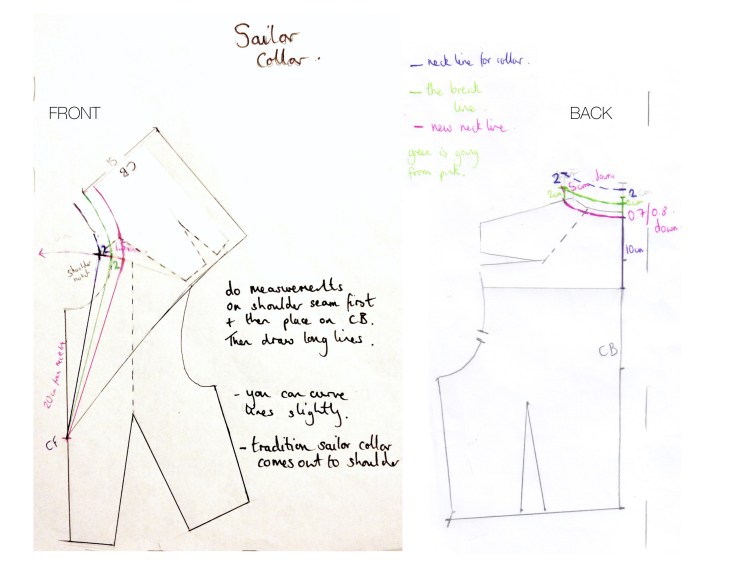 Sailor
Collar.
FRONT
BACK
– neck line for collar.
– the break
line.
– new neck line
green is going
from pink.
5
CB
2
2
shoulder
point
20cm from neck
CF
do measurements
on shoulder seam first
+ then place on CB.
Then draw long lines.
- you can curve
lines slightly.
- tradition sailor collar
comes out to shoulder
2
down
5cm
2cm
2cm
2cm
0.7/0.8
down
10cm
CB